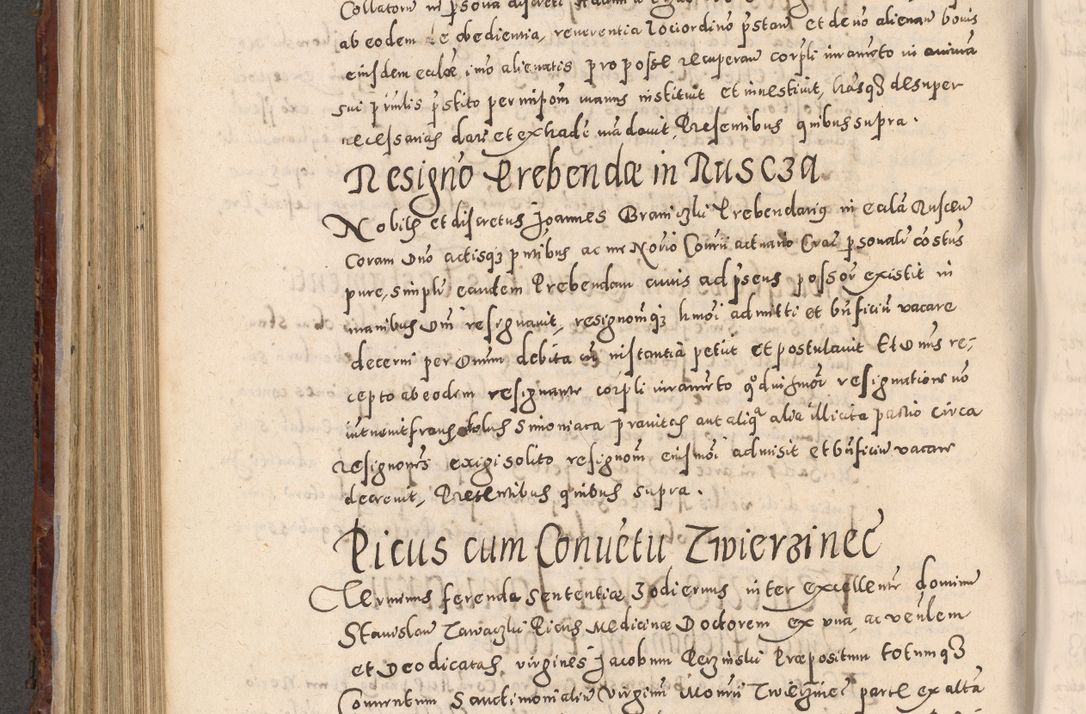 ab eodem de obedientia, reverentia Loci ordīno p̄stan̄ et de nō alienan̄ bonis
eiusdem eccłæ, imo alienatis pro posse recuperan̄ corpłi iuramēto in animā
sui p̄mlis p̄stito per impom̄ manus instituit et investivit, literasq₃ desuper
necessarias dari et extrade mādavit, Presentibus quibus supra.
Resigno Prebendæ in Ruscza
Nobilis et discretus Joannes Braniczki Prebendarius in eccłā Ruscen̄
Coram Dn̄o actisq₃ p̄ntibus ac me Not̄rio Con̄rii actuario Crac̄ p̄sonałr cōstūs
pure, simpłr eandem Prebendam cuius ad p̄sens possor̄ existit in
manibus Dn̄i resignavit, resignom̄q₃ hmōi admitti et bn̄ficiū vacare
decerni per Dn̄um debita cū instantia petiit et postulavit Et Dn̄us re-
cepto ab eodem resignante corpłi iuramēto qd̄ in hmōi resignatione nō
intervenit fraus dolus simoniaca pravitas aut aliqa alia illicita pactio circa
resignon̄es exigi solito resignom̄ eiusmōi admisit et bn̄ficiū vacare
decrevit, Presentibus quibus supra.
Picus cum Convētu Zwierzinec̄
Terminus ferendæ Sententiæ hodiernus inter Excellentē Dominū
Stanislaū Zawaczki Picus Medicinæ Doctorem ex una, ac venl̄em
et Deo dicatas virgines Jacobum Præpositum totumq₃
Conventum Sanctimonialiū Virginū Mon̄rii Zwierzinec̄ parte ex altā